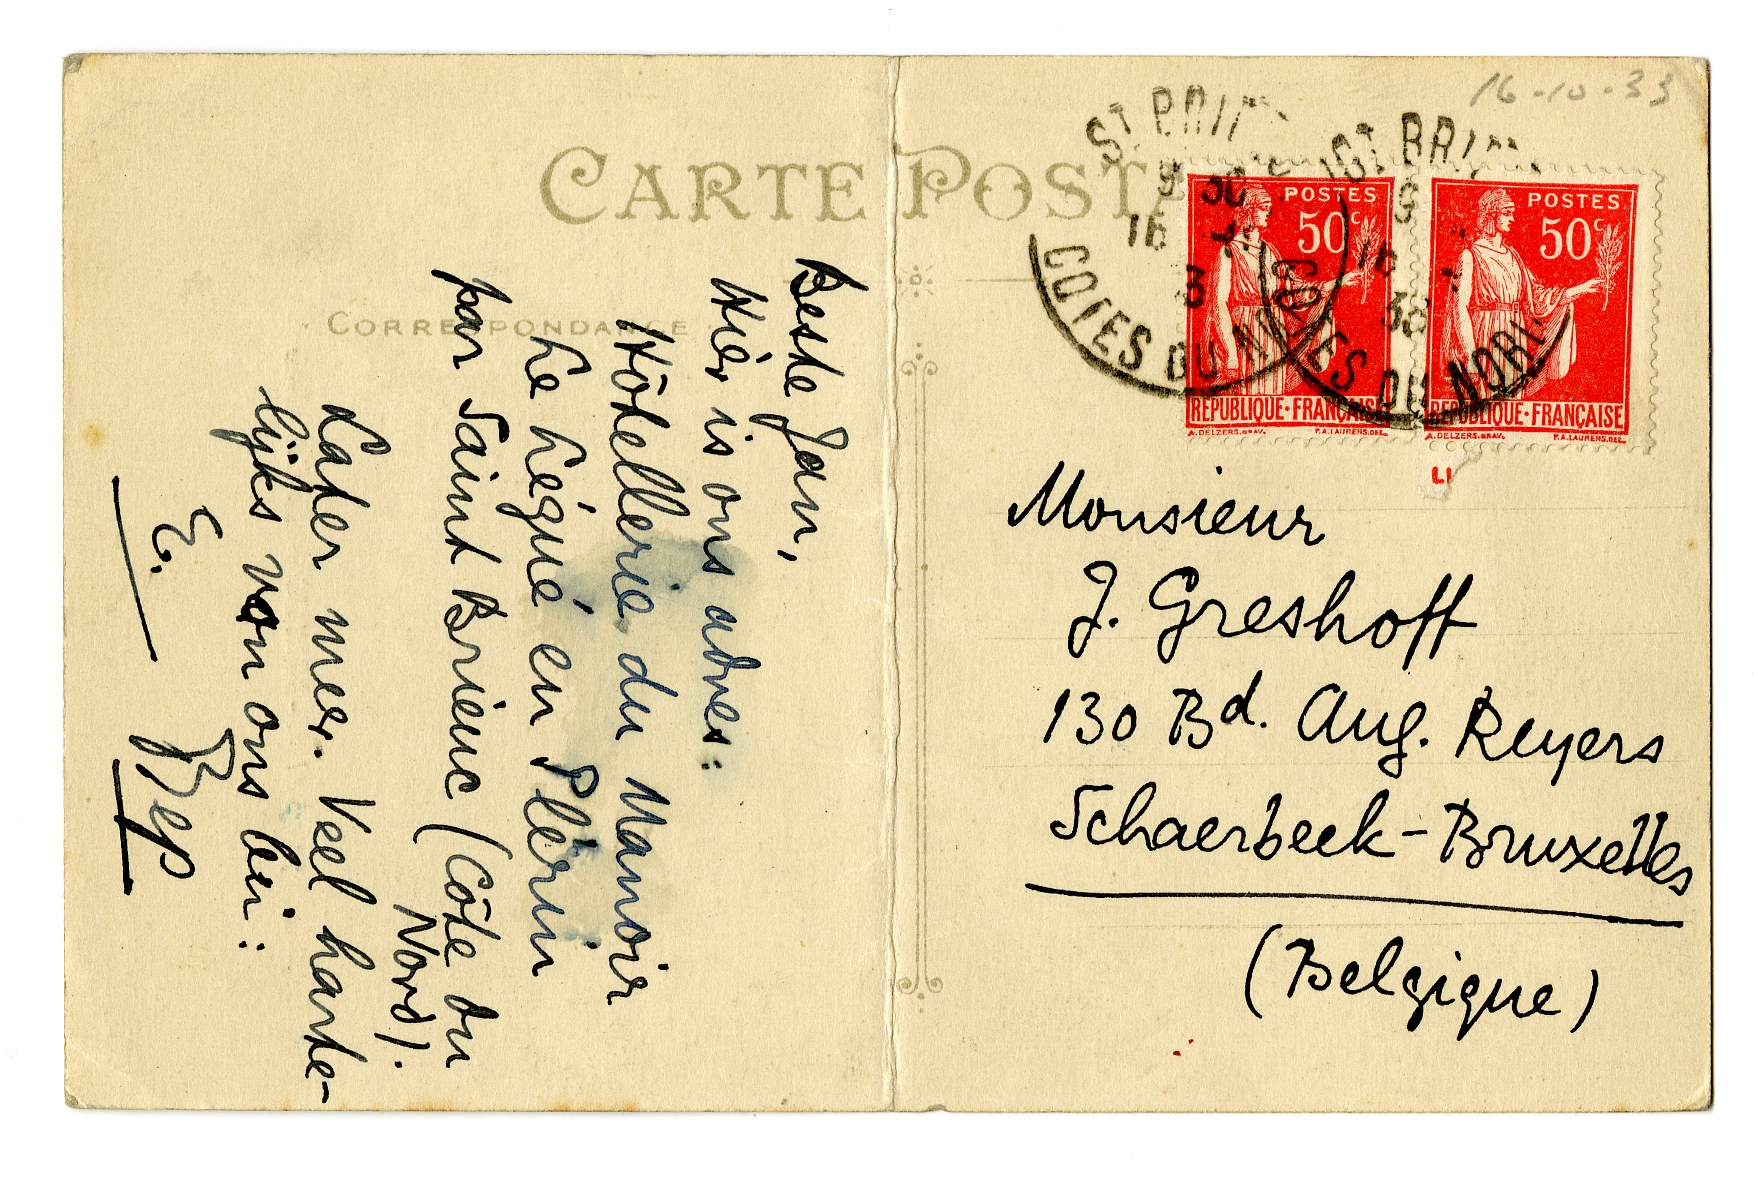 CARTE POSTA
CORRESPONDANCE
Beste Jan,
Hier is ons adres:
Hôtellerie du Manoir
Le Légué en Plérin
par Saint Brieuc (Côte du
Nord).
Later meer. Veel harte-
lijks van ons bei:
E.
Bep
16-10-33
ST BRI
9 30
16
3
COTES DU NORD
ST BRI
9
16
COTES DU NORD
POSTES
50c
REPUBLIQUE·FRANÇAISE
A.DELZERS.GRAV. P.A.LAURENS.DEL.
POSTES
50c
REPUBLIQUE·FRANÇAISE
A.DELZERS.GRAV. P.A.LAURENS.DEL.
Monsieur
J. Greshoff
130 Bd. Aug. Reyers
Schaerbeek-Bruxelles
(Belgique)